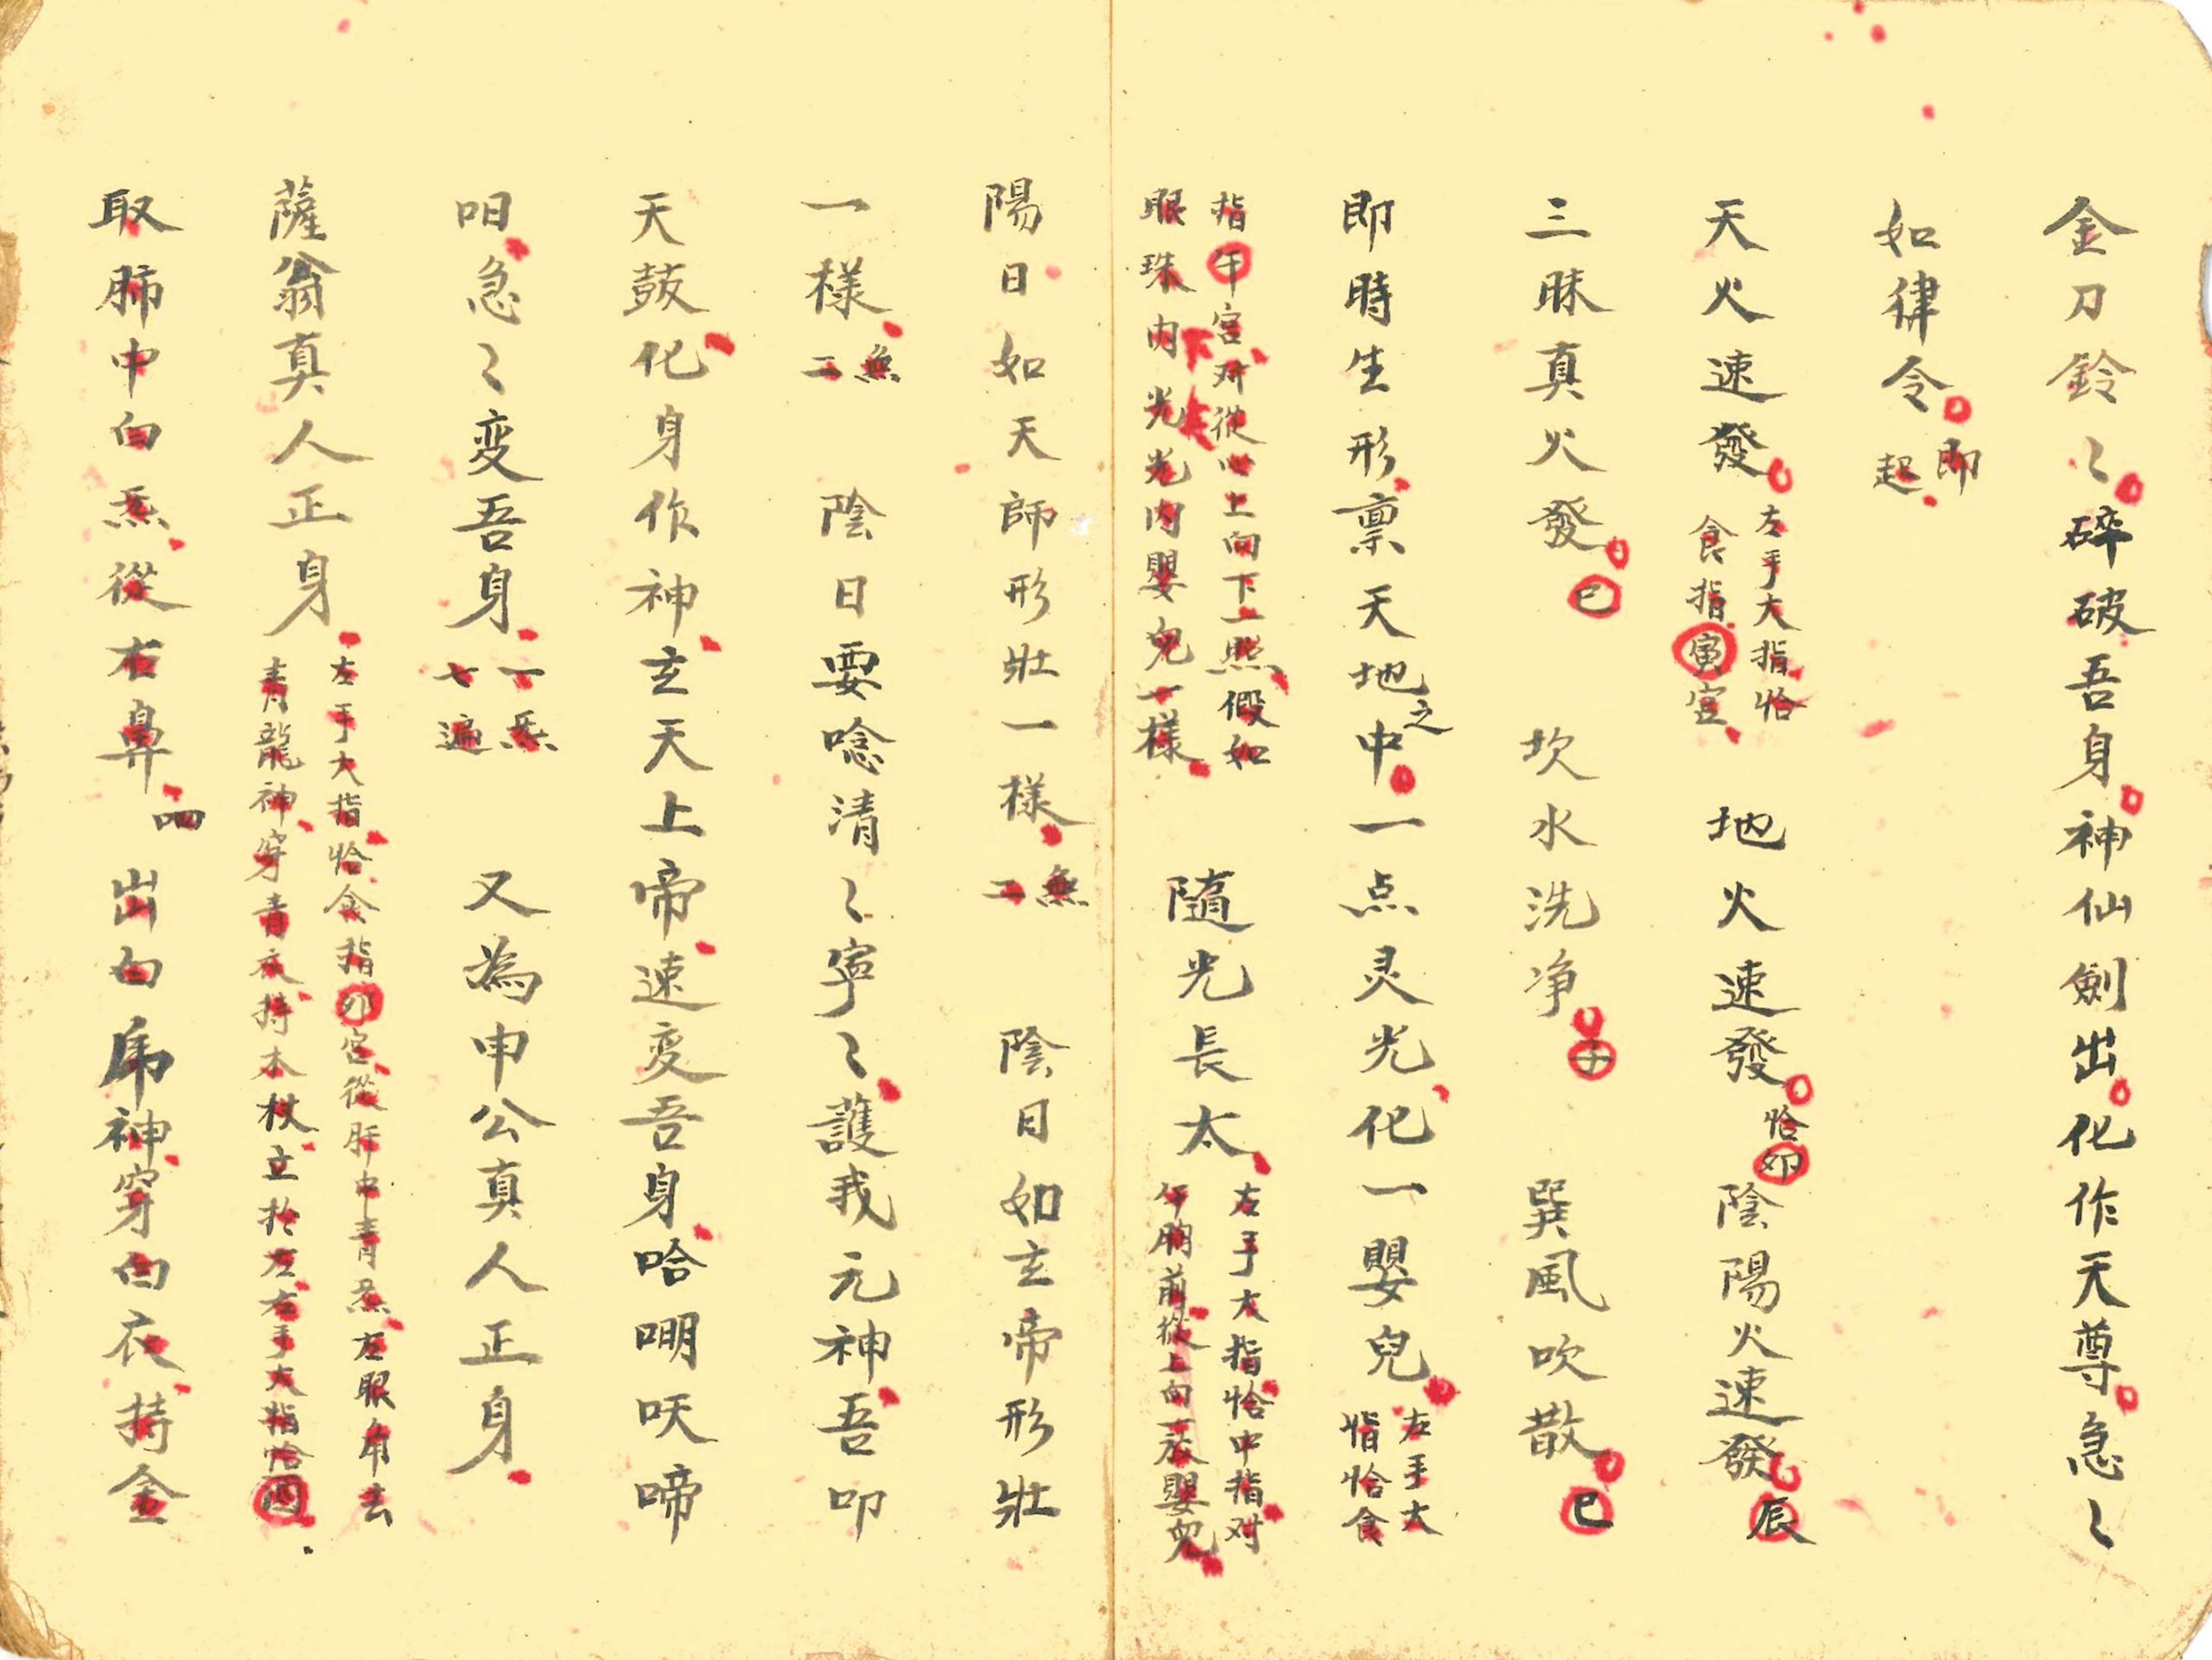 金刀鈴〻碎破吾身神仙劍出化作天尊急〻
如律令即起
天火速發左手大指恰食指寅宮 地火速發恰卯陰陽火速發辰
三昧真火發巳 坎水洗净子 巽風吹散巳
即時生形禀天地之中一点灵光化一嬰兒左手大指恰食
指午宮对從心上向下一照假如
眼珠内光光内嬰兒一樣 隨光長太左手大指恰中指对午朔前從上向下放嬰兒
陽日如天師形壯一樣二炁 陰日如玄帝形壯
一樣二炁 陰日要唸清〻寧〻護我元神吾叩
天鼓化身作神玄天上帝速変吾身哈嘲呋啼
呬急〻変吾身一炁七遍 又為申公真人正身
薩翁真人正身左手大指恰食指卯宮從肝中青炁左眼角去青龍神穿青衣持本杖立於左右手大指恰酉
取肺中白炁從右鼻呬出白虎神穿白衣持金